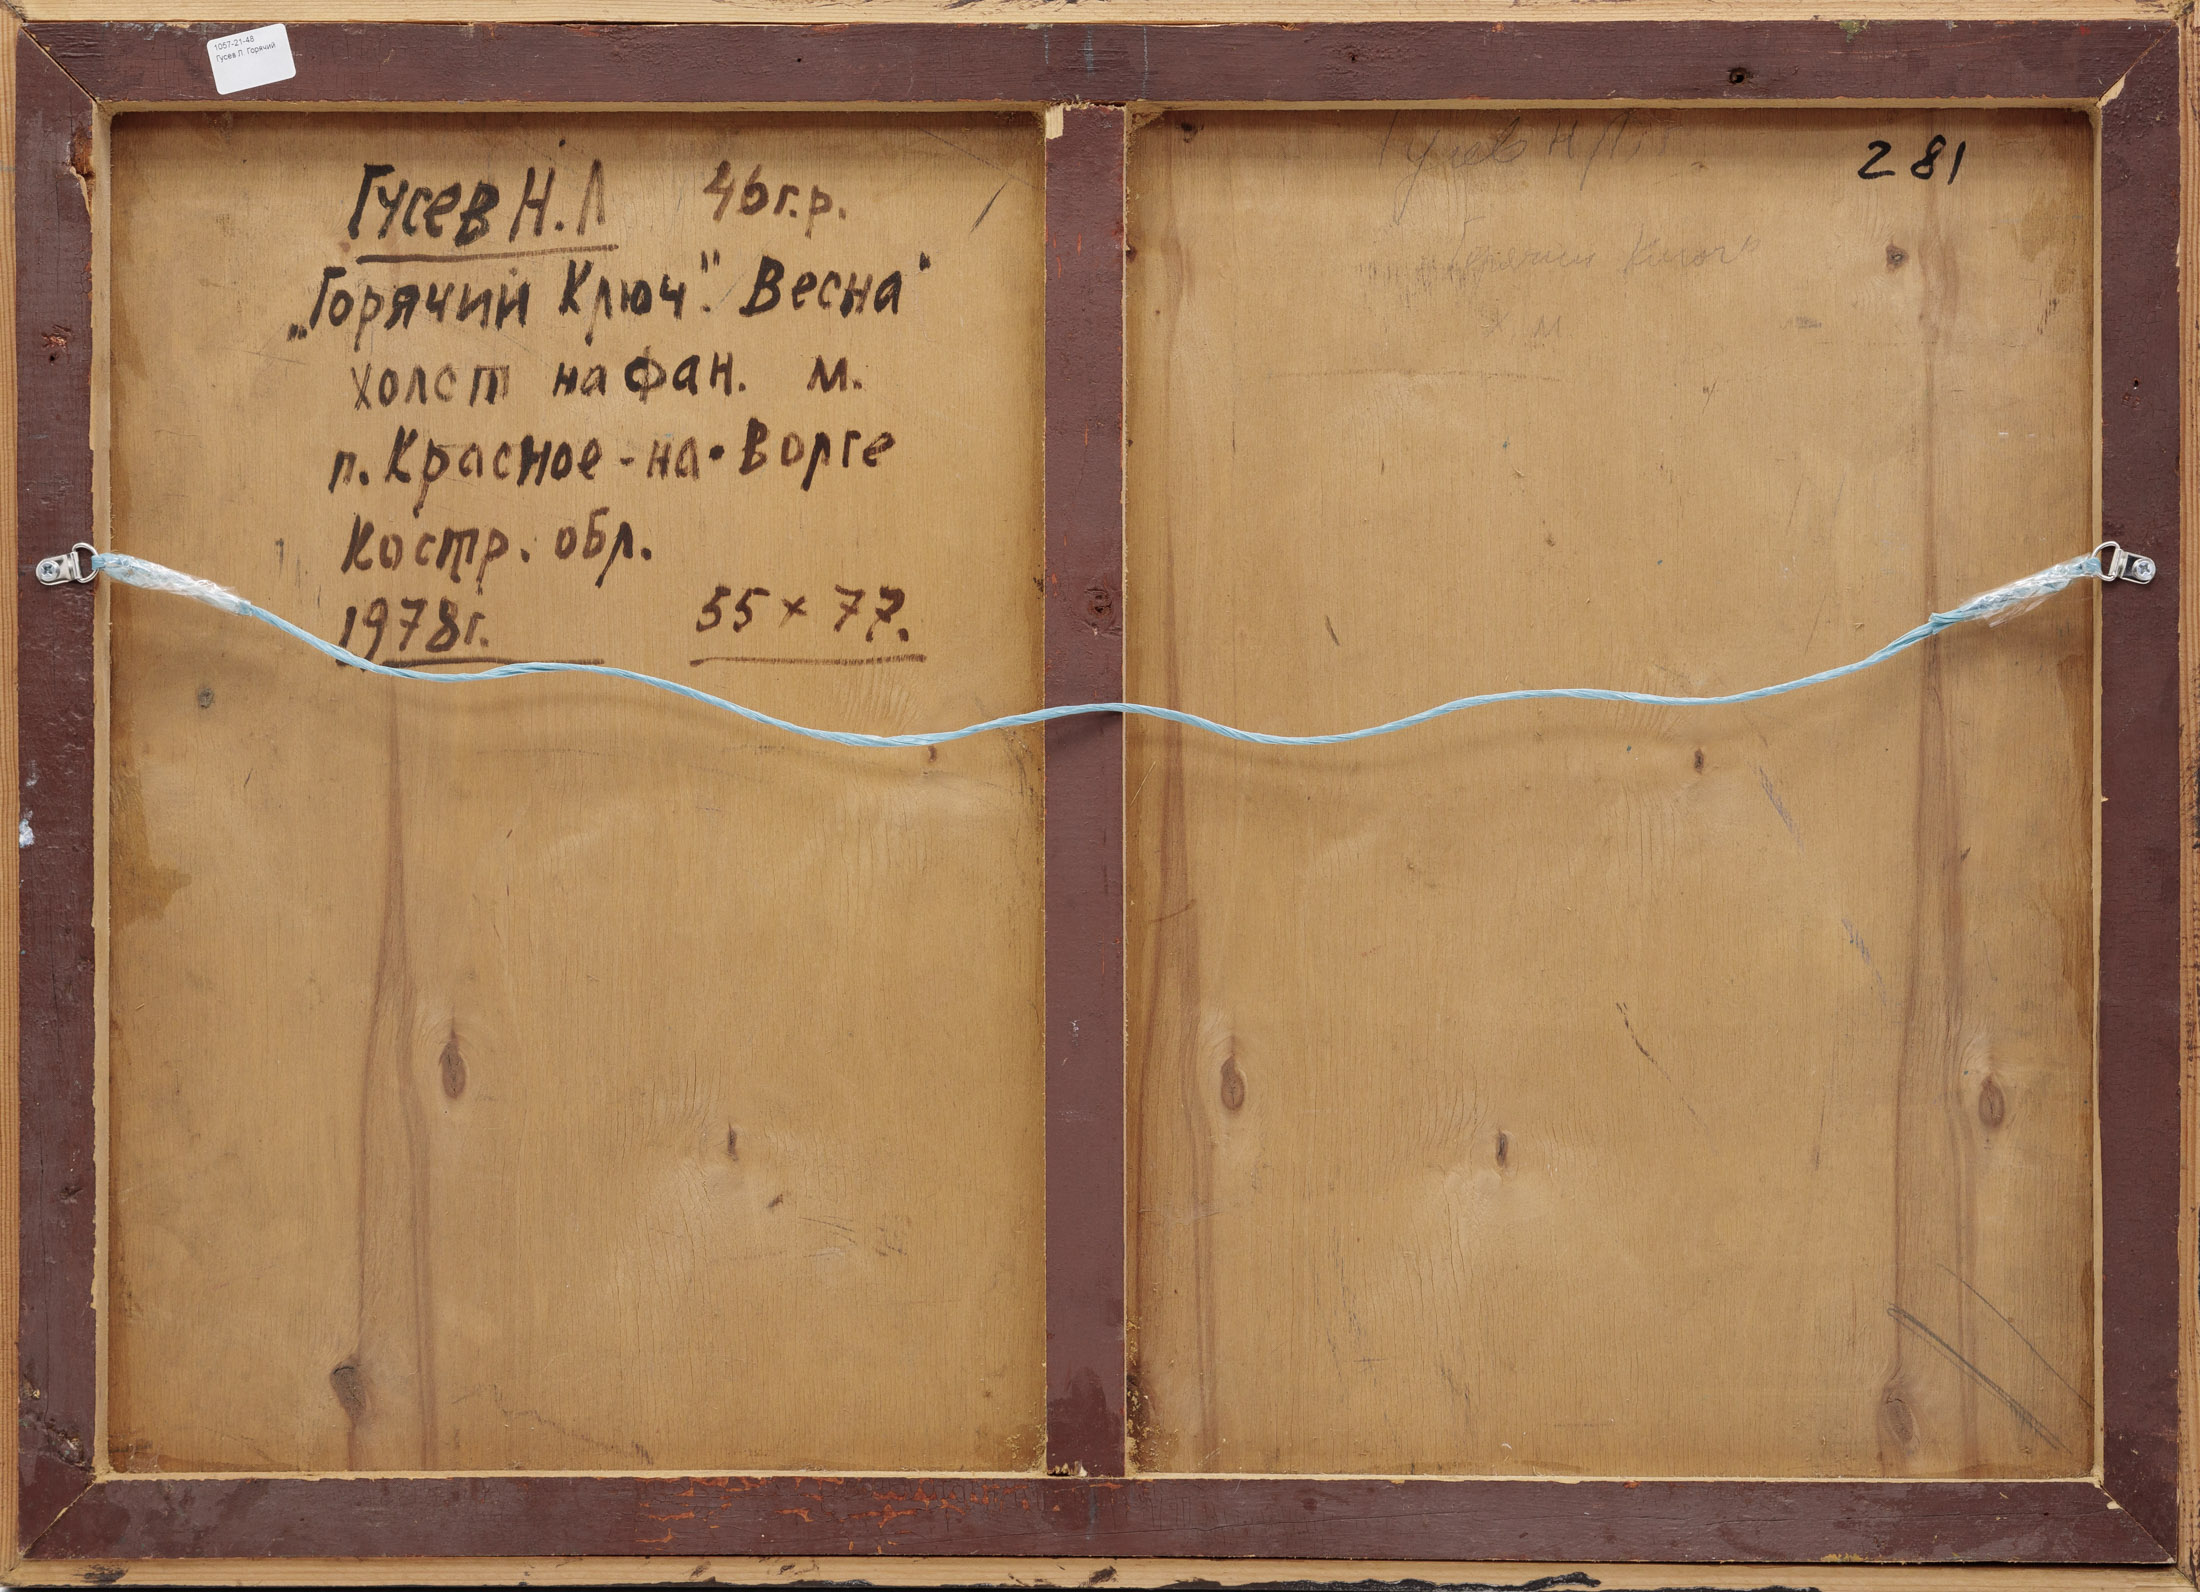 1057-21-48
Гусев Л. Горячий
Гусев Н.Л 46 г.р.
„Горячий Ключ". Весна"
холст на фан. м.
п. Красное-на-Ворге
Костр. обл.
1978г. 55 x 77.
Гусев Н Л.
Горячий Ключ"
х м
281